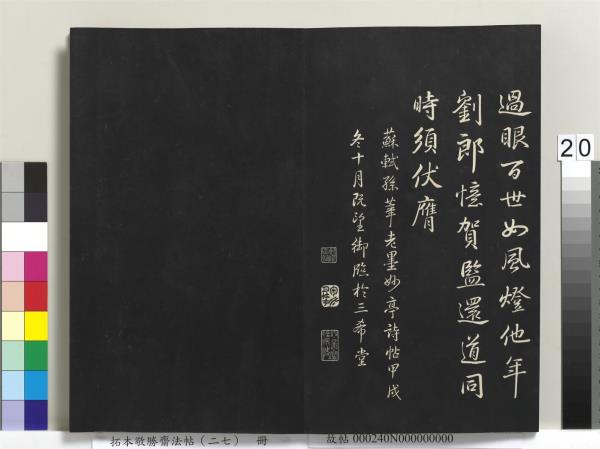 過眼百世如風燈他年
劉郎憶賀監還道同
時須伏膺
蘇軾孫莘老墨妙亭詩帖甲戌
冬十月既望御臨於三希堂
20
拓本敬勝齋法帖（二七） 冊
故帖 000240N000000000